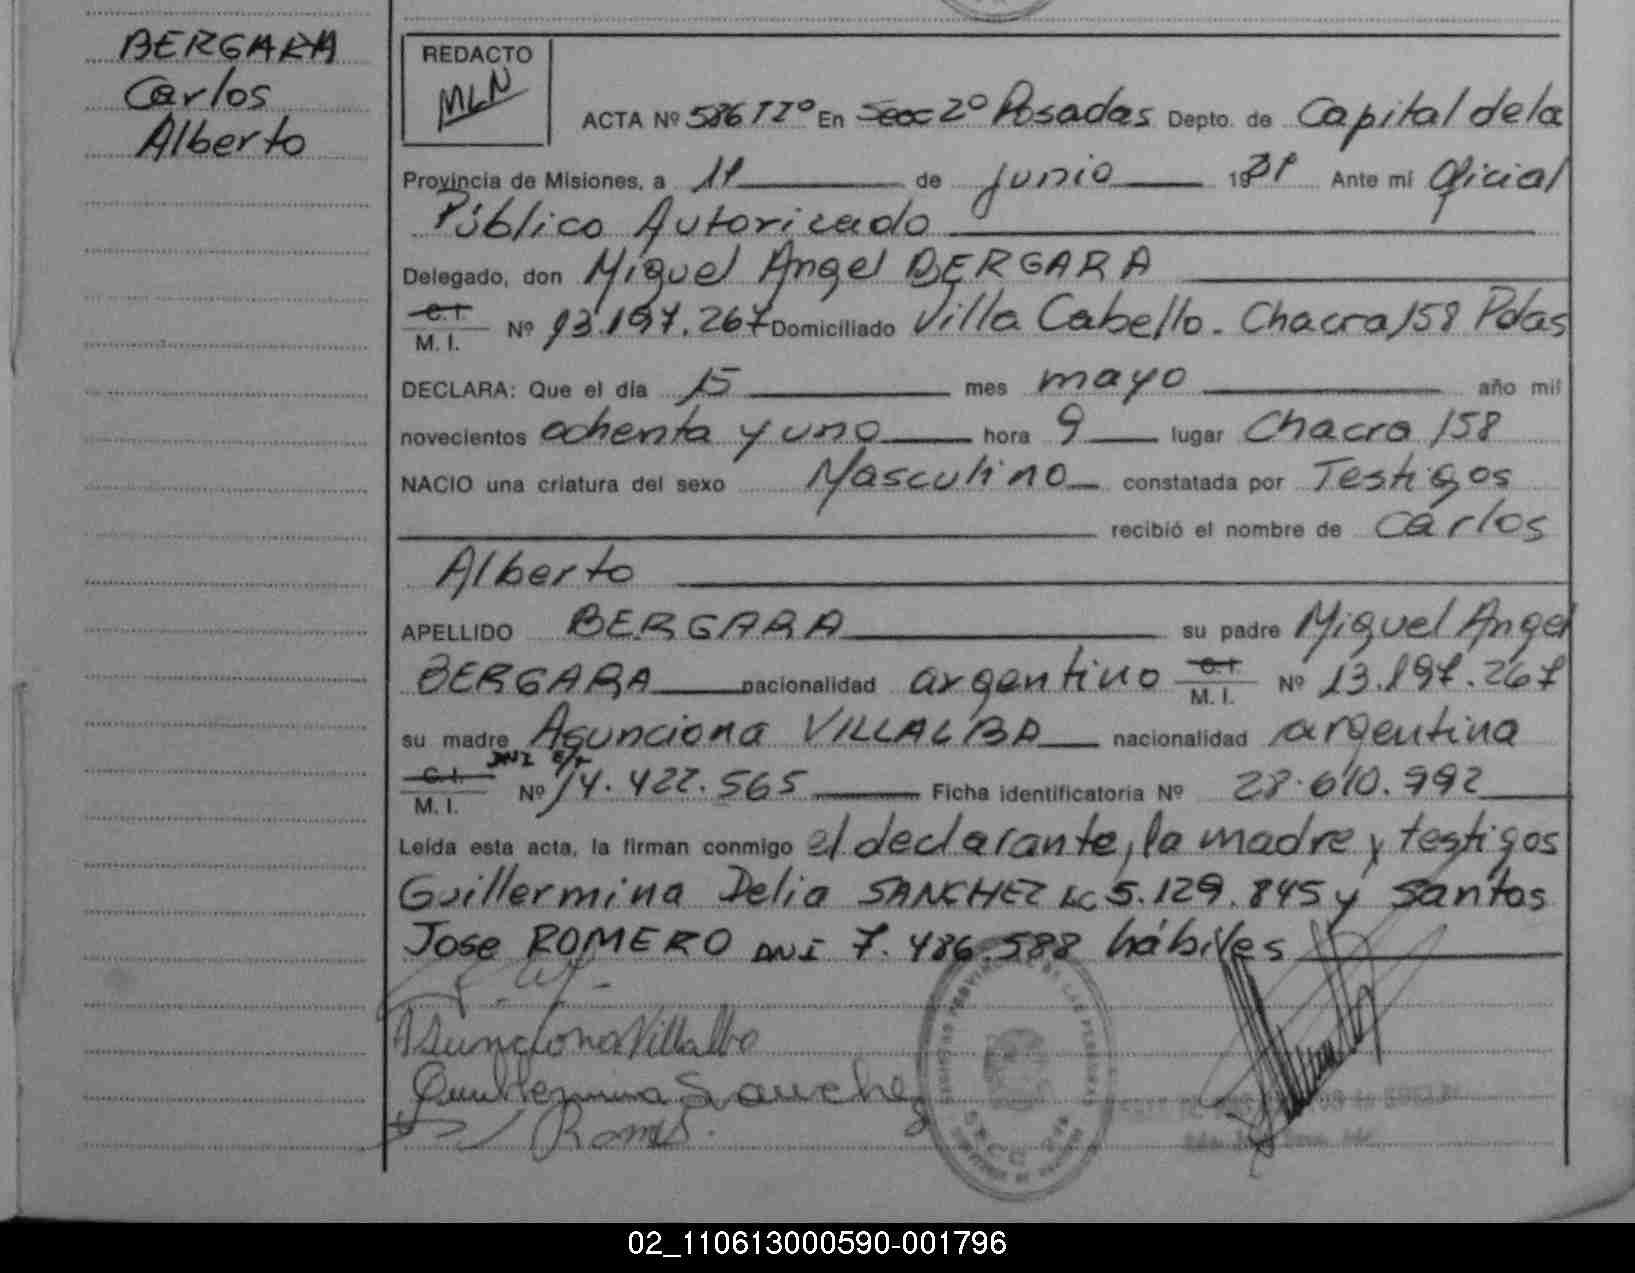 BERGARA
Carlos
Alberto
REDACTO
MLN
ACTA Nº 586 TIº En Secc 2º Posadas Depto. de Capital de la
Provincia de Misiones, a 11 de junio 1981 Ante mi Oficial
Público Autorizado
Delegado, don Miguel Angel BERGARA
C.I. M. I. Nº 13.197.267 Domiciliado Villa Cabello. Chacra 158 Pdas
DECLARA: Que el día 15 mes mayo año mil
novecientos ochenta y uno hora 9 lugar Chacra 158
NACIO una criatura del sexo Masculino constatada por Testigos
recibió el nombre de Carlos
Alberto
APELLIDO BERGARA su padre Miguel Angel
BERGARA nacionalidad argentino C.I. M. I. Nº 13.197.267
su madre Asunciona VILLALBA nacionalidad argentina
C.I. M. I. DNI E/T Nº 14.422.565 Ficha identificatoria Nº 28.610.992
Leída esta acta, la firman conmigo el declarante, la madre y testigos
Guillermina Delia SANCHEZ LC 5.129.845 y Santos
Jose ROMERO DNI 7.486.588 hábiles
Asunciona Villalba
Guillermina Sanchez
02_110613000590-001796